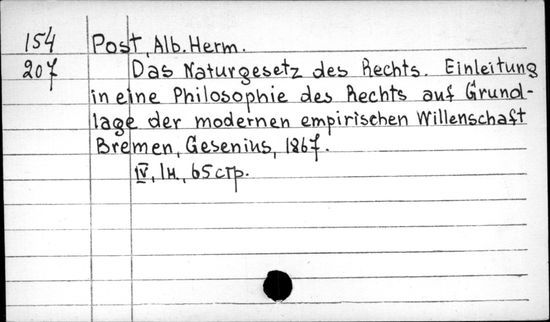 154 Post, Alb. Herm.
207 Das Naturgesetz des Rechts. Einleitung
in eine Philosophie des Rechts auf Grund-
lage der modernen empirischen Willenschaft
Bremen, Gesenius, 1867.
IV, 1н, 65 стр.